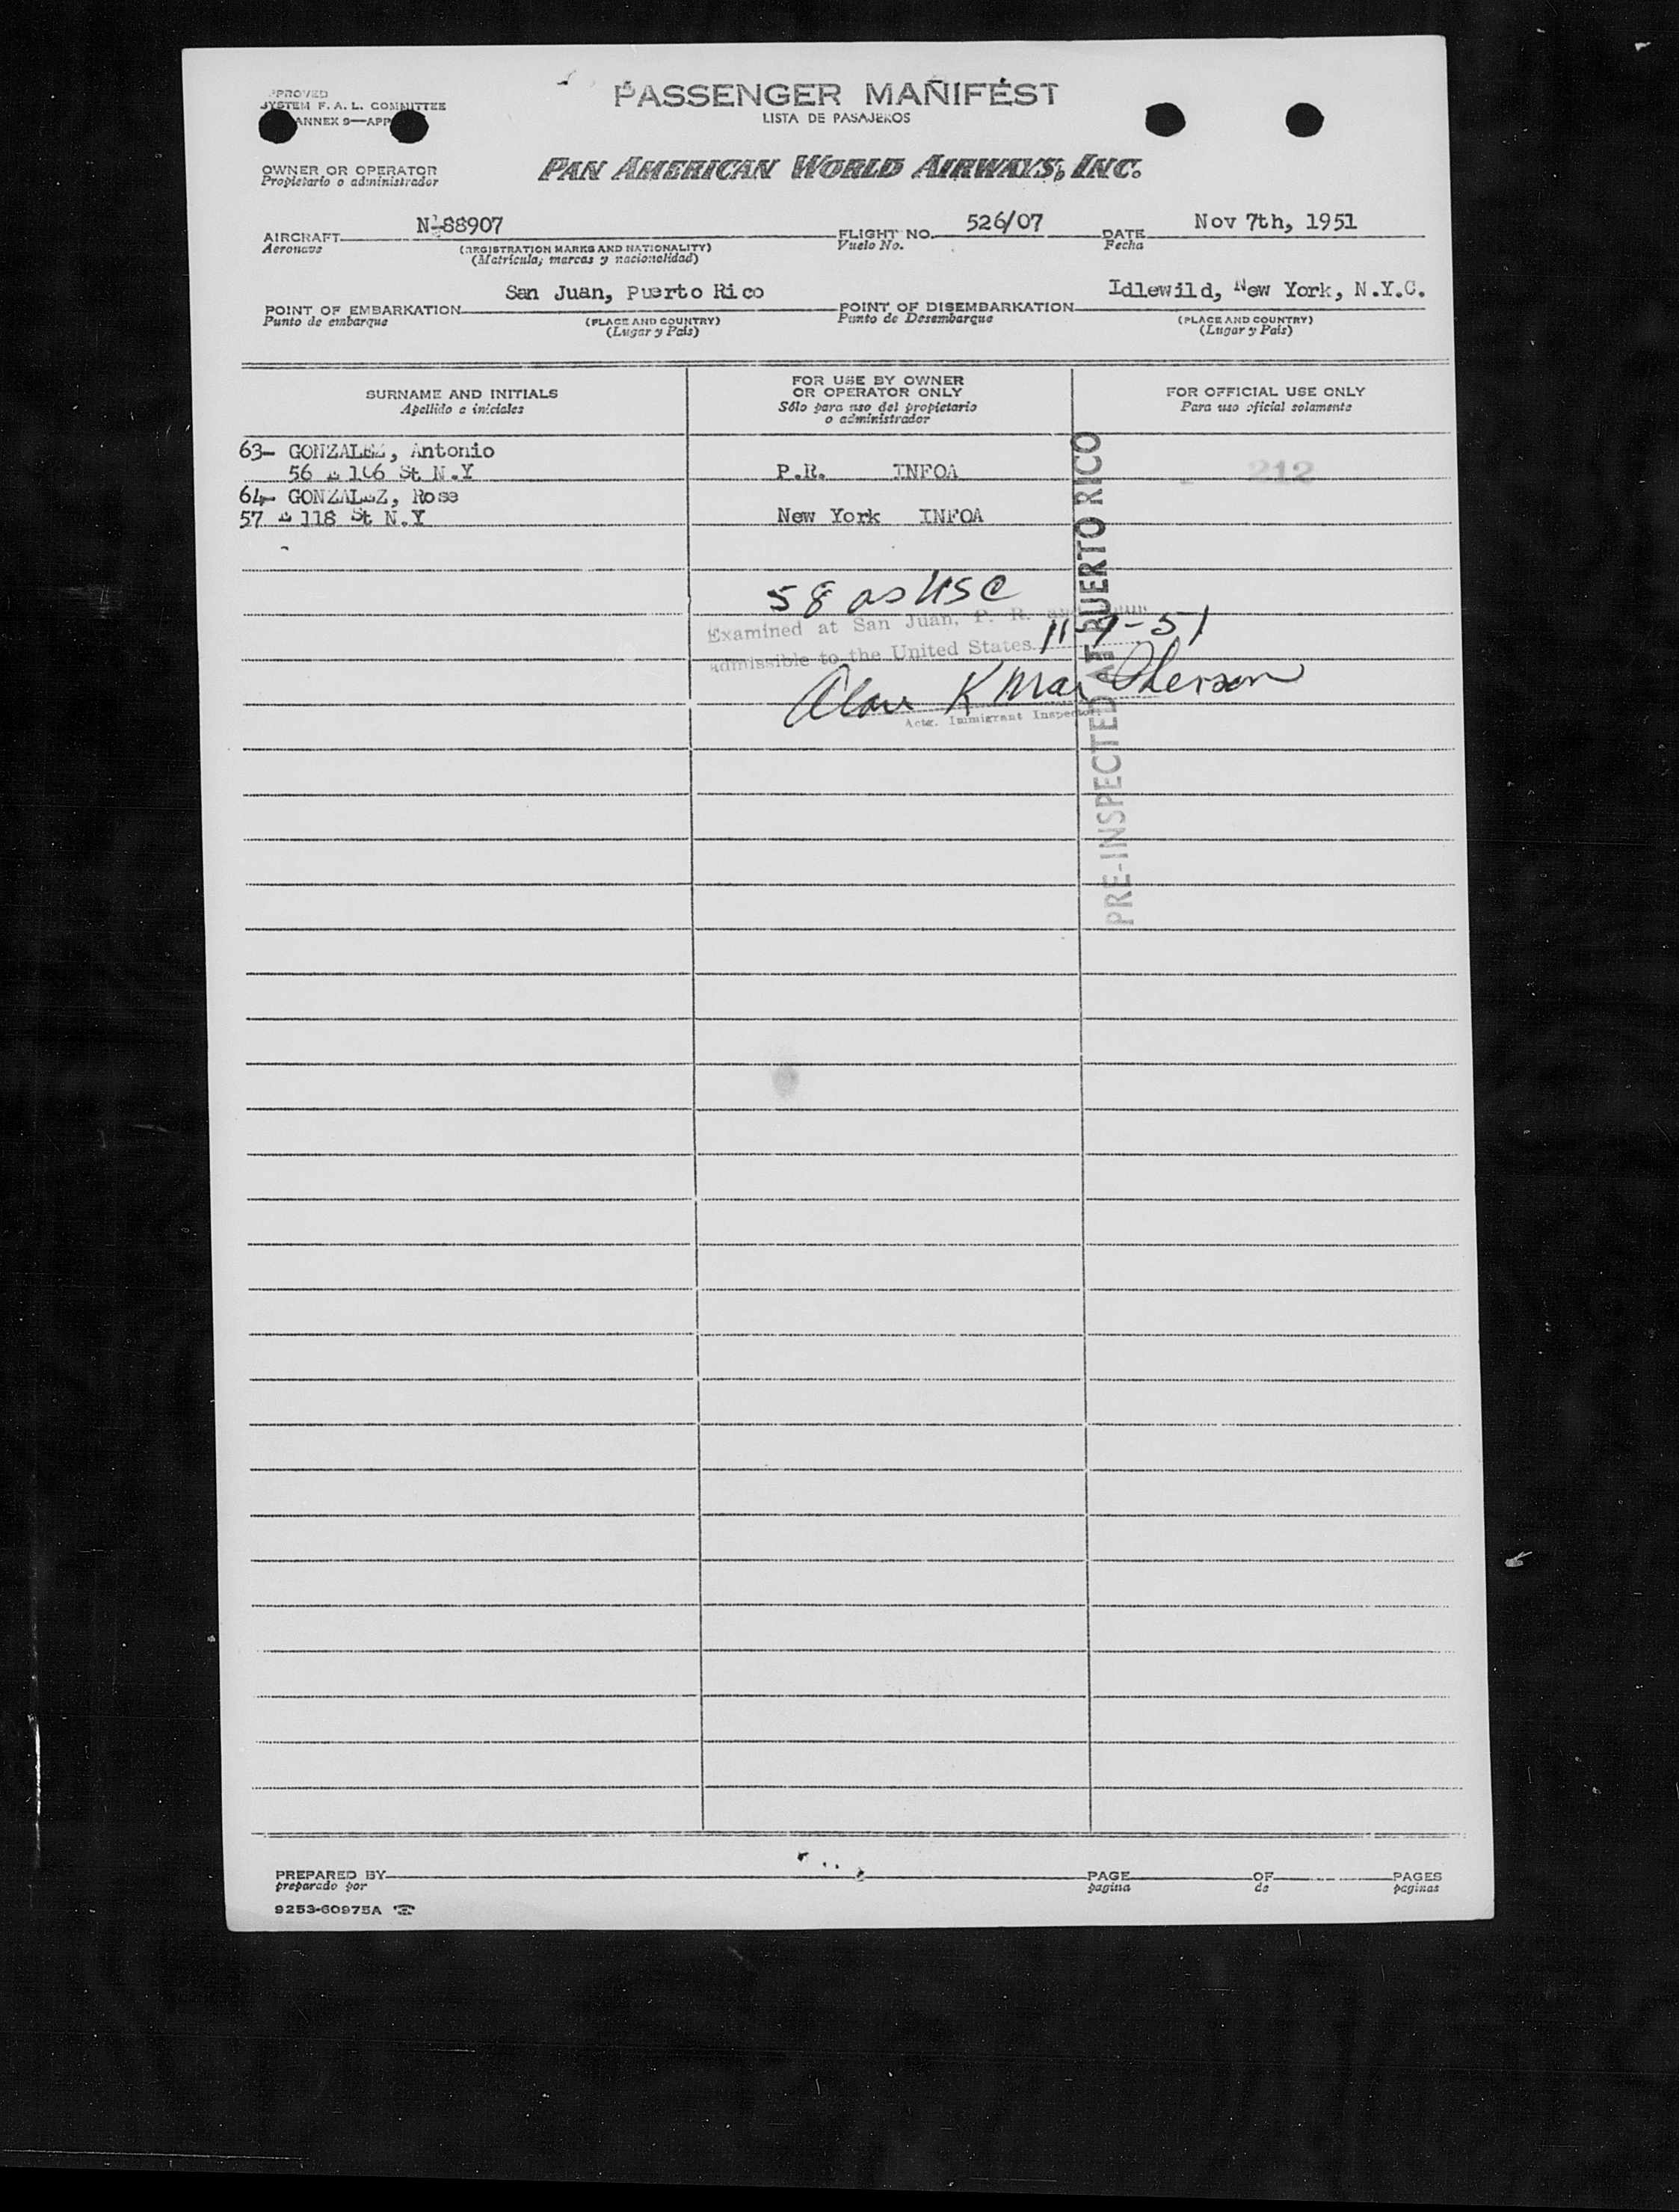 PPROVED
SYSTEM F. A. L. COMMITTEE
ANNEX 9—APP
PASSENGER MANIFEST
LISTA DE PASAJEROS
OWNER OR OPERATOR
Propietario o administrador
PAN AMERICAN WORLD AIRWAYS, INC.
AIRCRAFT N-88907 FLIGHT NO. 526/07 DATE Nov 7th, 1951
Aeronave (REGISTRATION MARKS AND NATIONALITY) Vuelo No. Fecha
(Matrícula, marcas y nacionalidad)
POINT OF EMBARKATION San Juan, Puerto Rico POINT OF DISEMBARKATION Idlewild, New York, N.Y.C.
Punto de embarque (PLACE AND COUNTRY) Punto de Desembarque (PLACE AND COUNTRY)
(Lugar y País) (Lugar y País)
SURNAME AND INITIALS
Apellido e iniciales
FOR USE BY OWNER
OR OPERATOR ONLY
Sólo para uso del propietario
o administrador
FOR OFFICIAL USE ONLY
Para uso oficial solamente
63— GONZALEZ, Antonio
56 E 106 St N.Y P.R. INFOA 212
64— GONZALEZ, Rosa
57 E 118 St N.Y New York INFOA
58 as USC
Examined at San Juan, P. R. and
admissible to the United States. 11-7-51
Alan K MacPherson
Actg. Immigrant Inspector
PRE-INSPECTED AT PUERTO RICO
PREPARED BY PAGE OF PAGES
preparado por pagina de paginas
9253-60975A